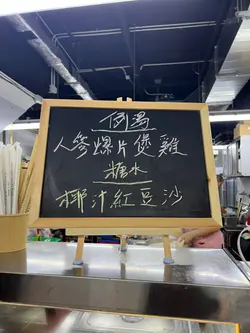 例湯
人參螺片煲雞
糖水
椰汁紅豆沙